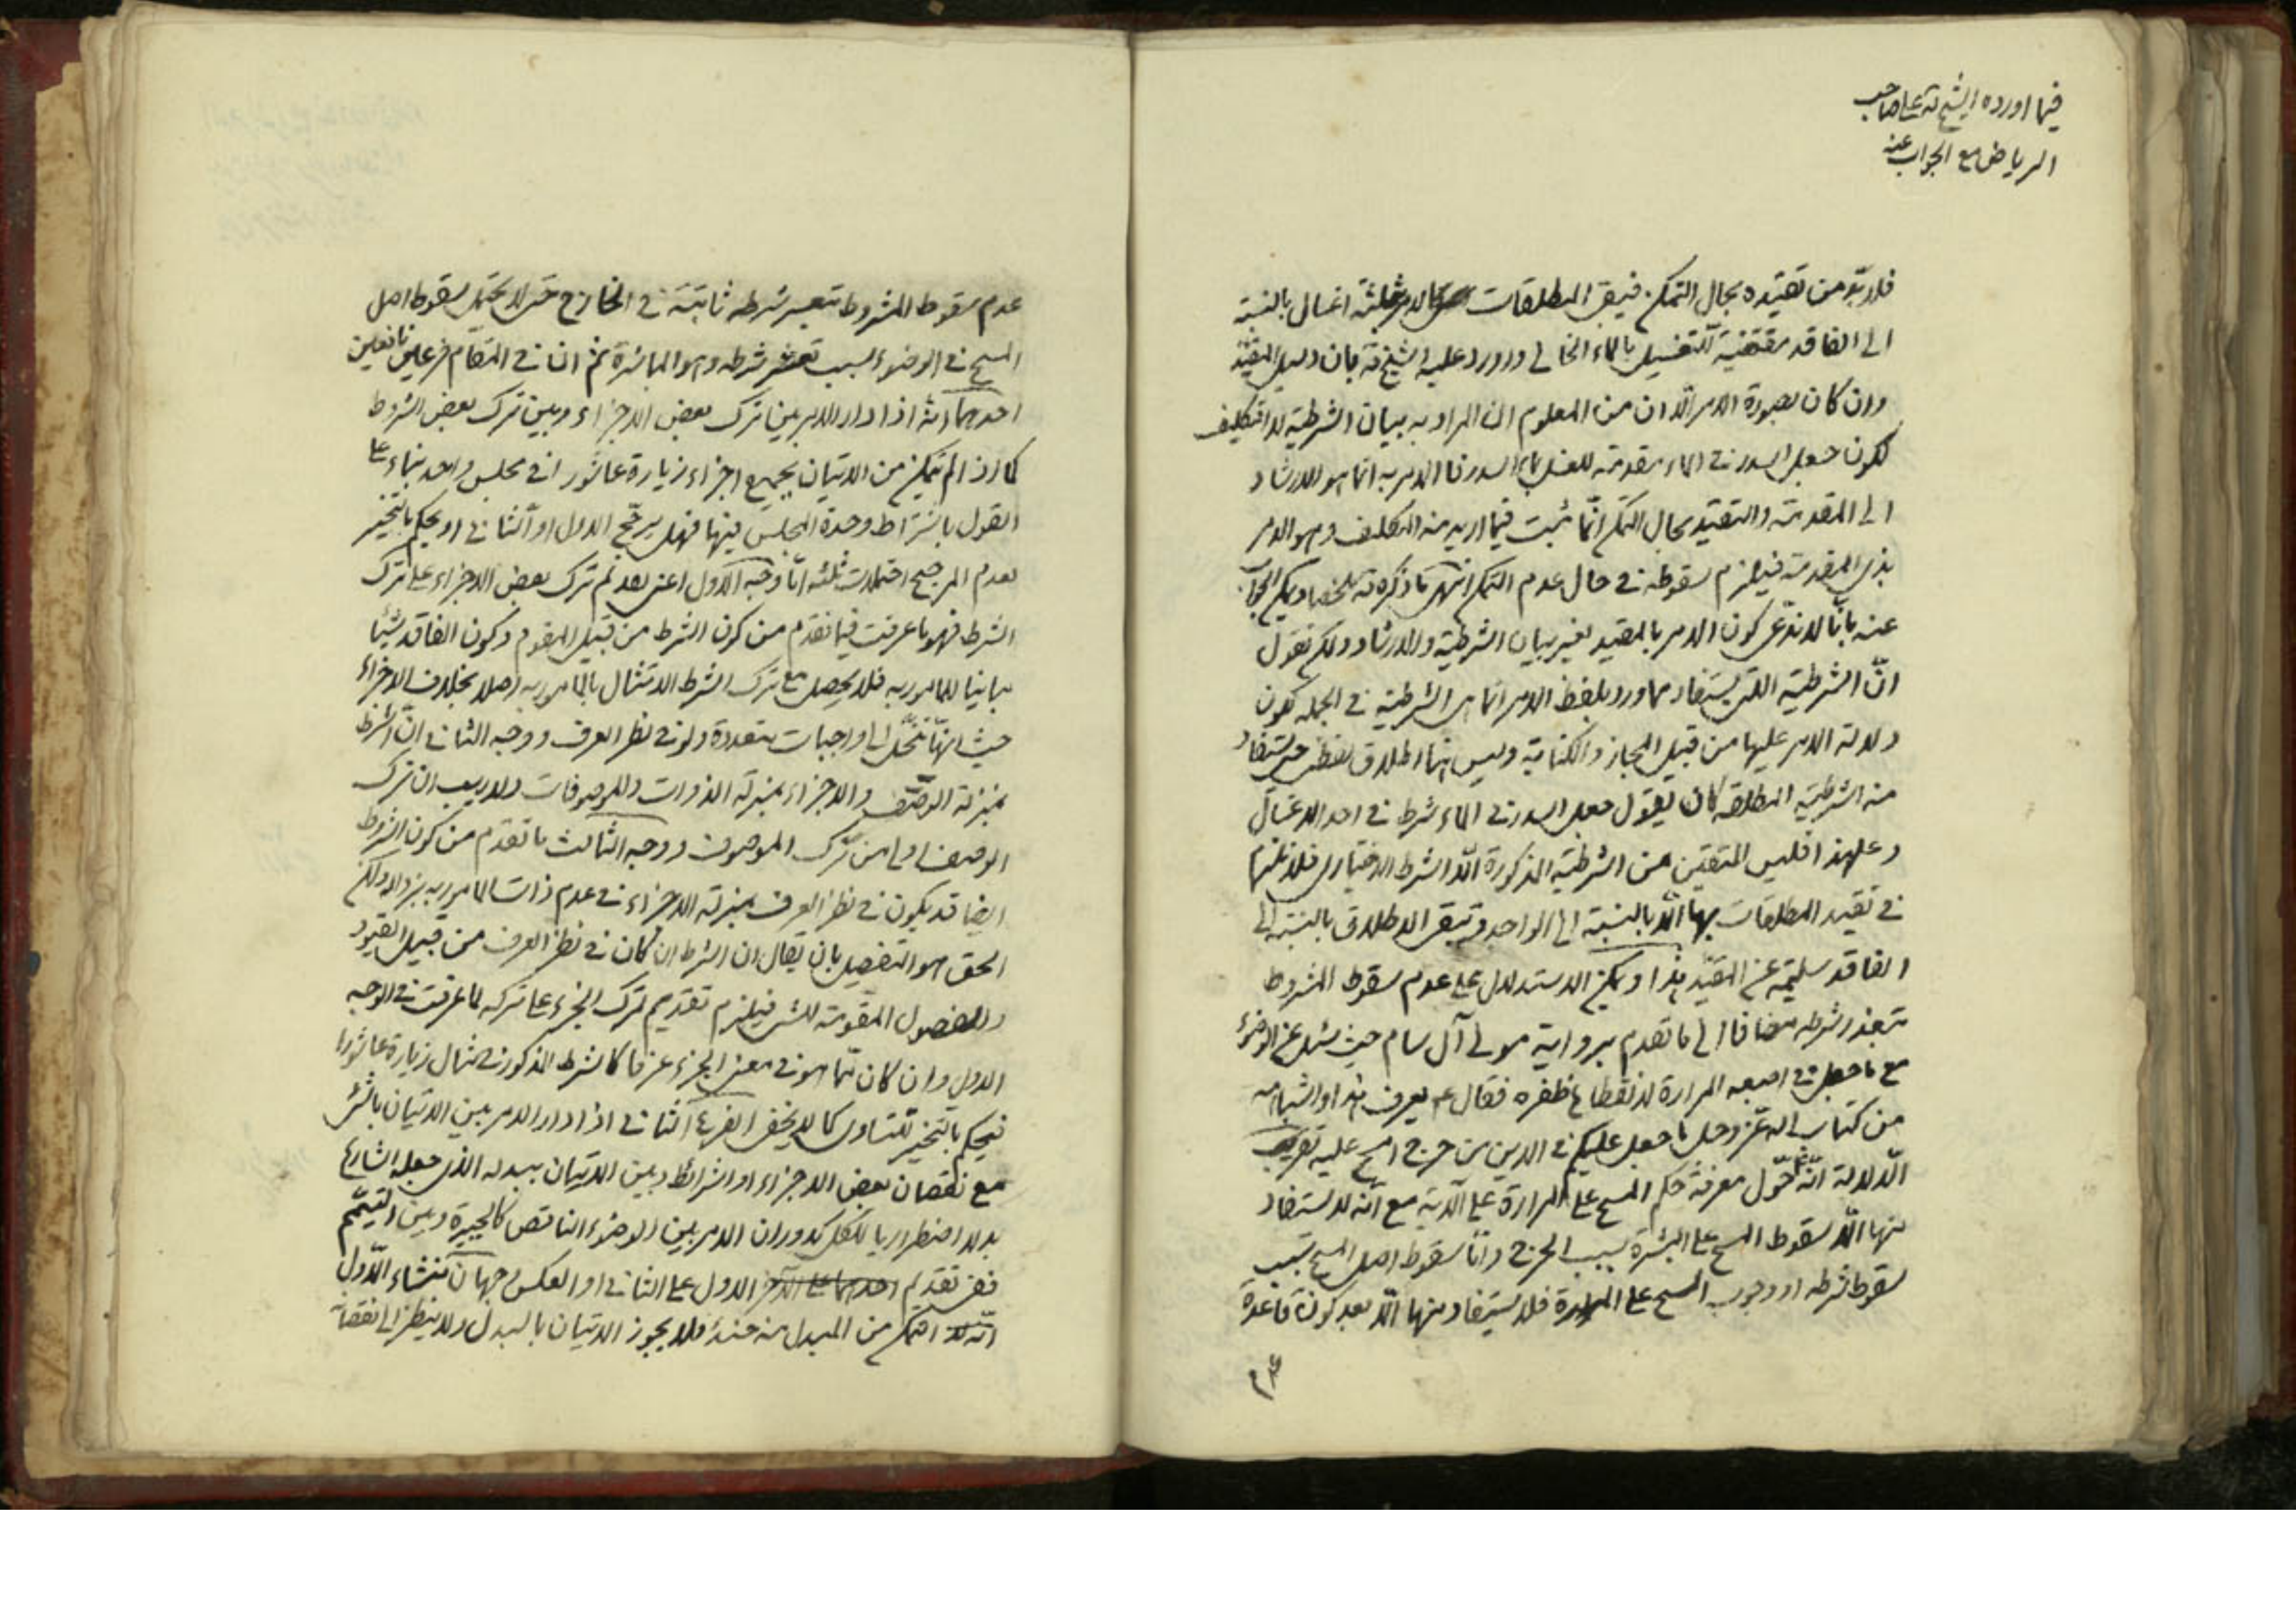 فيما اورده الشيخ ره على صاحب
الرياض مع الجواب عنه
فلابدّ من تقييده بحال التمكن فيبقى المطلقات بثلثة اغسال بالنسبة
الى الفاقد مقتضية للتغسيل بالماء الخالى واورد عليه الشيخ ره بان دليل المقيّد
وان كان بصورة الامر الّا ان من المعلوم ان المراد به بيان الشرطية لا التكليف
لكون جعل السدر فى الماء مقدمة للغسل بماء السدر فالامر به انما هو للارشاد
الى المقدمة والتقييد بحال التمكن انّما ثبت فيما اريد منه التكليف وهو الامر
بذى المقدمة فيلزم سقوطه فى حال عدم التمكن انتهى ما ذكره ره ملخصا ويمكن الجواب
عنه بانّا لا ندّعى كون الامر بالمقيد لغير بيان الشرطية والارشاد ولكن نقول
انّ الشرطية التى يستفاد مما ورد بلفظ الامر انما هى الشرطية فى الجملة لكون
دلالة الامر عليها من قبيل المجاز والكناية وليس لها اطلاق لفظى حتى يستفاد
منه الشرطية المطلقة كان يقول جعل السدر فى الماء شرط فى احد الاغسال
وعلى هذا فليس المتيقن من الشرطية المذكورة الّا الشرط الاختيارى فلا نلتزم
فى تقييد المطلقات بها الّا بالنسبة الى الواجد وتبقى الاطلاق بالنسبة الى
الفاقد سليمة عن المقيّد هذا ويمكن الاستدلال على عدم سقوط المشروط
بتعذر شرطه مضافا الى ما تقدم برواية مولى آل سام حيث سئل عن الوضوء
مع ما جعل فى اصبعه المرارة لانقطاع ظفره فقال ع يعرف هذا واشباهه
من كتاب الله عزّ وجل ما جعل عليكم فى الدين من حرج امسح عليه تقريب
الّدلالة انّه حوّل معرفة حكم المسح على المرارة على الآية مع انّه لا يستفاد
منها الّا سقوط المسح على البشرة بسبب الحرج وامّا سقوط اصل المسح بسبب
سقوط شرطه او وجوب المسح على المرارة فلا يستفاد منها الّا بعد كون قاعدة
عدم
عدم سقوط المشروط بتعسر شرطه ثابتة فى الخارج حتى لا يحتمل سقوط اصل
المسح فى الوضوء بسبب تعسر شرطه وهو المباشرة ثم ان فى المقام فرعين نافعين
احدهما انّه اذا دار الامر بين ترك بعض الاجزاء وبين ترك بعض الشروط
كما اذا لم يتمكن من الاتيان بجميع اجزاء زيارة عاشورا فى مجلس واحد بناء على
القول باشتراط وحدة المجلس فيها فهل يرجّح الاول او الثانى او يحكم بالتخيير
لعدم المرجح احتمالات ثلثة امّا وجه الاول اعنى تقديم ترك بعض الاجزاء على ترك
الشرط فهو ما عرفت فيما تقدم من كون الشرط من قبيل المقوم وكون الفاقد شيئا
مباينا للمامور به فلا يحصل مع ترك الشرط الامتثال بالمامور به اصلا بخلاف الاجزاء
حيث انها تنحلّ الى واجبات متعددة ولو فى نظر العرف ووجه الثانى انّ الشرط
بمنزلة الوصف والاجزاء بمنزلة الذوات والموصوفات ولا ريب ان ترك
الوصف اولى من ترك الموصوف ووجه الثالث ما تقدم من كون الشروط
ايضا قد يكون فى نظر العرف بمنزلة الاجزاء فى عدم ذات المامور به بزواله ولكن
الحق هو التفصيل بان يقال ان الشرط ان كان فى نظر العرف من قبيل القيود
والفصول المقومة للشىء فيلزم تقديم ترك الجزء على تركه لما عرفت فى الوجه
الاول وان كان ممّا هو فى معنى الجزء عرفا كالشرط المذكور فى مثال زيارة عاشورا
فيحكم بالتخيير للتساوى كما لا يخفى الفرع الثانى اذا دار الامر بين الاتيان بالشىء
مع نقصان بعض الاجزاء او الشرائط وبين الاتيان ببدله الذى جعله الشارع
بدلا اضطراريا للكل كدوران الامر بين الوضوء الناقص كالجبيرة وبين التيمّم
ففى تقديم احدهما على الآخر الاول على الثانى او العكس وجهان منشاء الاول
انّه لا التمكن من المبدل منه حينئذ فلا يجوز الاتيان بالبدل ولا ينظر الى نقصان